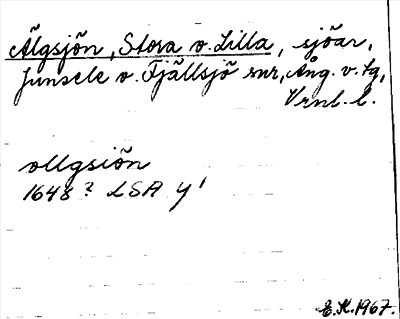 Älgsjön, Stora o. Lilla, sjöar,
Junsele o. Fjällsjö snr, Ång. v. lg,
Vrnl. l.
ollgsiön
1648? LSA Y¹
E.K. 1967.